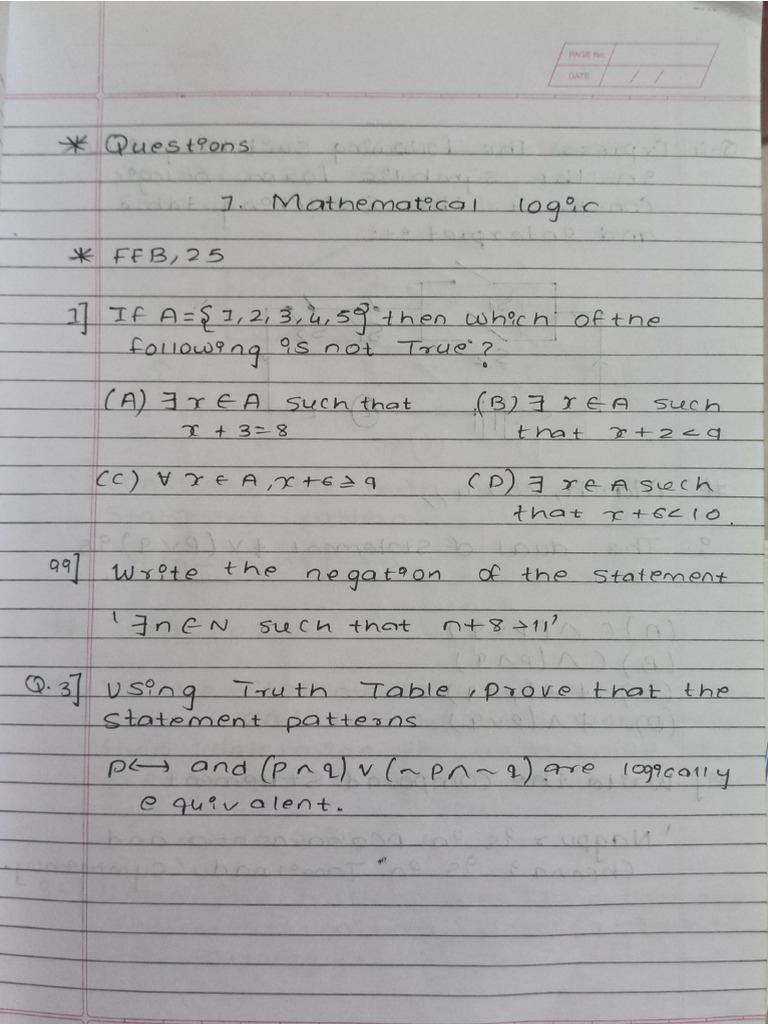 PAGE No.
DATE / /
* Questions
1. Mathematical logic
* FEB, 25
1] If A = { 1, 2, 3, 4, 5} then which of the
following is not True?
(A) ∃ x ∈ A such that (B) ∃ x ∈ A such
x + 3 = 8 that x + 2 < 9
(C) ∀ x ∈ A, x + 6 ≥ 9 (D) ∃ x ∈ A such
that x + 6 < 10.
99] Write the negation of the statement
' ∃ n ∈ N such that n + 8 > 11'
Q.3] Using Truth Table, prove that the
statement patterns
p ↔ and (p ∧ q) ∨ (~p ∧ ~q) are logically
equivalent.